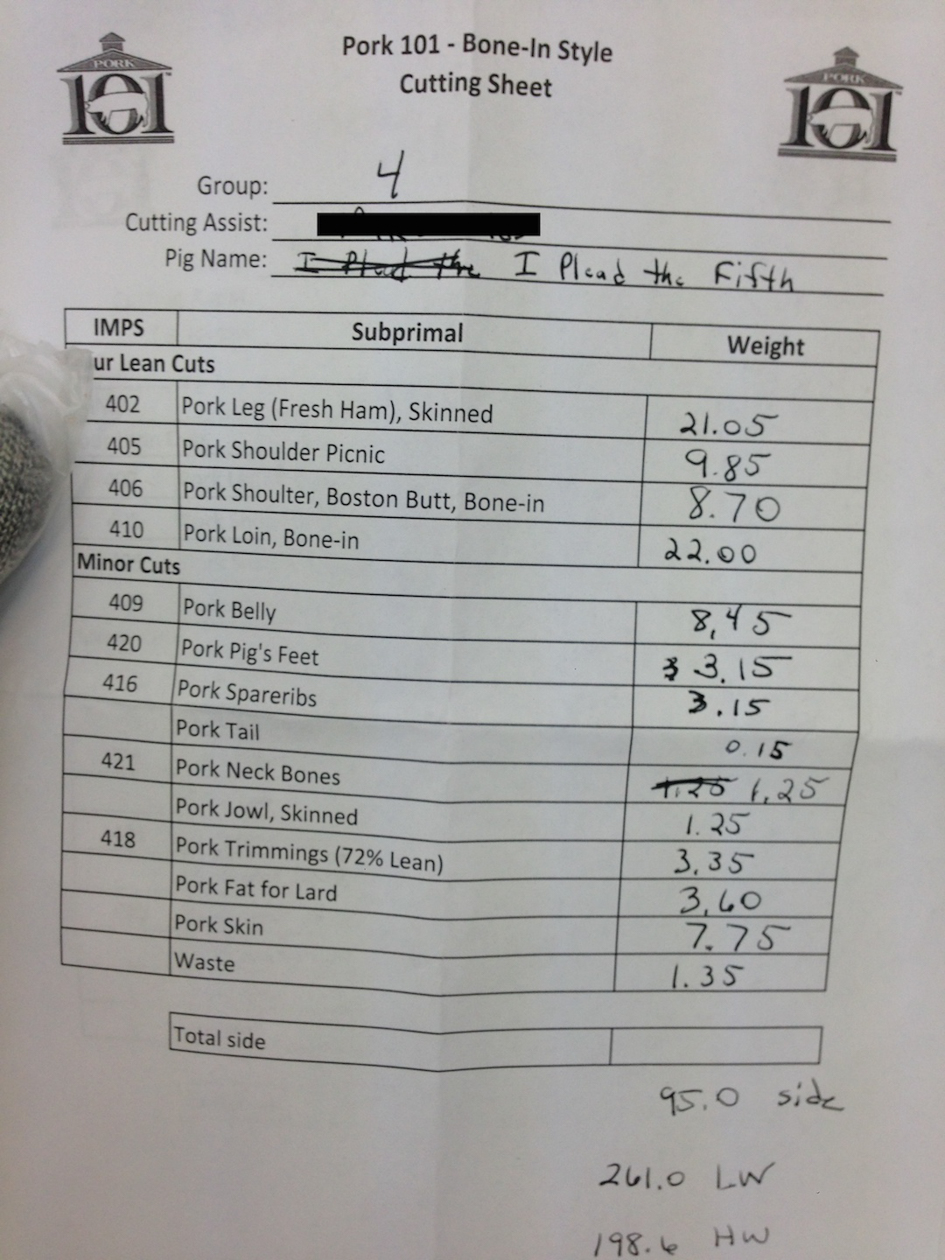 PORK
101
Pork 101 - Bone-In Style
Cutting Sheet
PORK
101
Group: 4
Cutting Assist:
Pig Name: I Plead the I Plead the Fifth
IMPS Subprimal Weight
ur Lean Cuts
402 Pork Leg (Fresh Ham), Skinned 21.05
405 Pork Shoulder Picnic 9.85
406 Pork Shoulter, Boston Butt, Bone-in 8.70
410 Pork Loin, Bone-in 22.00
Minor Cuts
409 Pork Belly 8,45
420 Pork Pig's Feet 3 3.15
416 Pork Spareribs 3.15
Pork Tail 0.15
421 Pork Neck Bones 1.25 1,25
Pork Jowl, Skinned 1.25
418 Pork Trimmings (72% Lean) 3,35
Pork Fat for Lard 3,60
Pork Skin 7.75
Waste 1.35
Total side
95.0 side
261.0 LW
198.6 HW